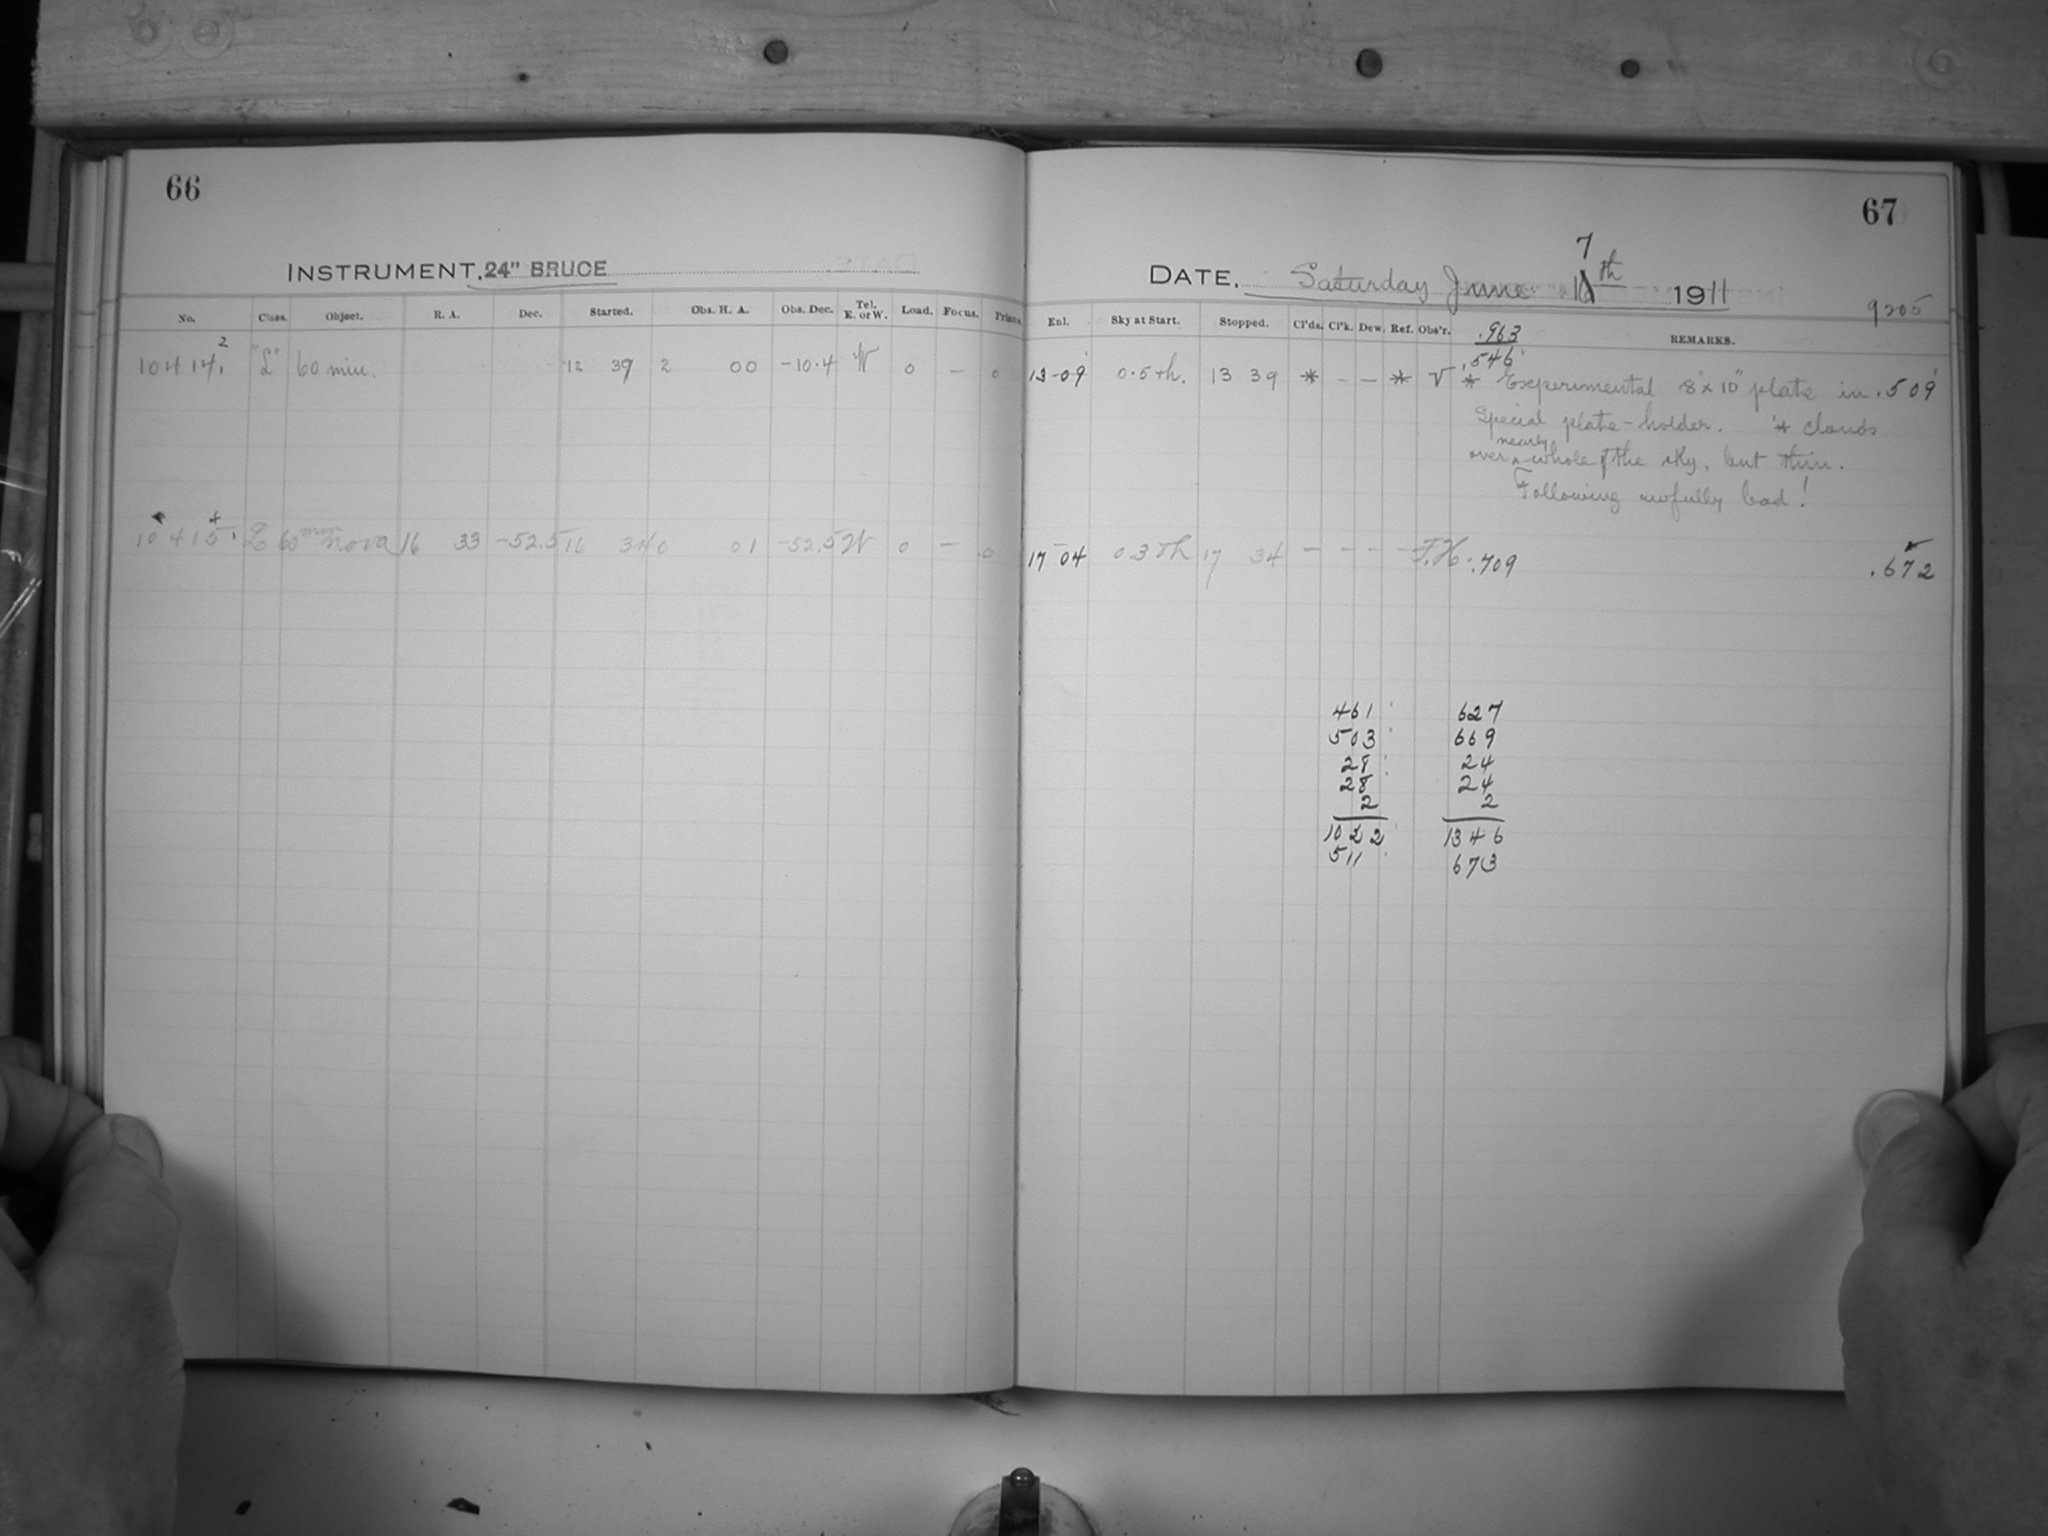 66
67
INSTRUMENT. 24" BRUCE
7
DATE, Saturday June th 1911
9205
No. Class. Object. R. A. Dec. Started. Obs. H. A. Obs. Dec. Tel. E. or W. Load. Focus. Prism.
Enl. Sky at Start. Stopped. Cl'ds. Cl'k. Dew. Ref. Obs'r. REMARKS.
.963
.546
2
10414, "L" 60 min. 12 39 2 00 -10.4 W 0 - 0
13-09 0.5 th. 13 39 * - - * V * Experimental 8" x 10" plate in .509
Special plate-holder. * clouds
nearly
over ^ whole of the sky, but thin.
Following awfully bad!
10415 L 60 min nova 16 33 -52.5 16 34 0 01 -52.5 W 0 - 0
17 04 0.3 th 17 34 - - - - .709 .672
461 627
503 669
28 24
28 24
2 2
1022 1346
511 673